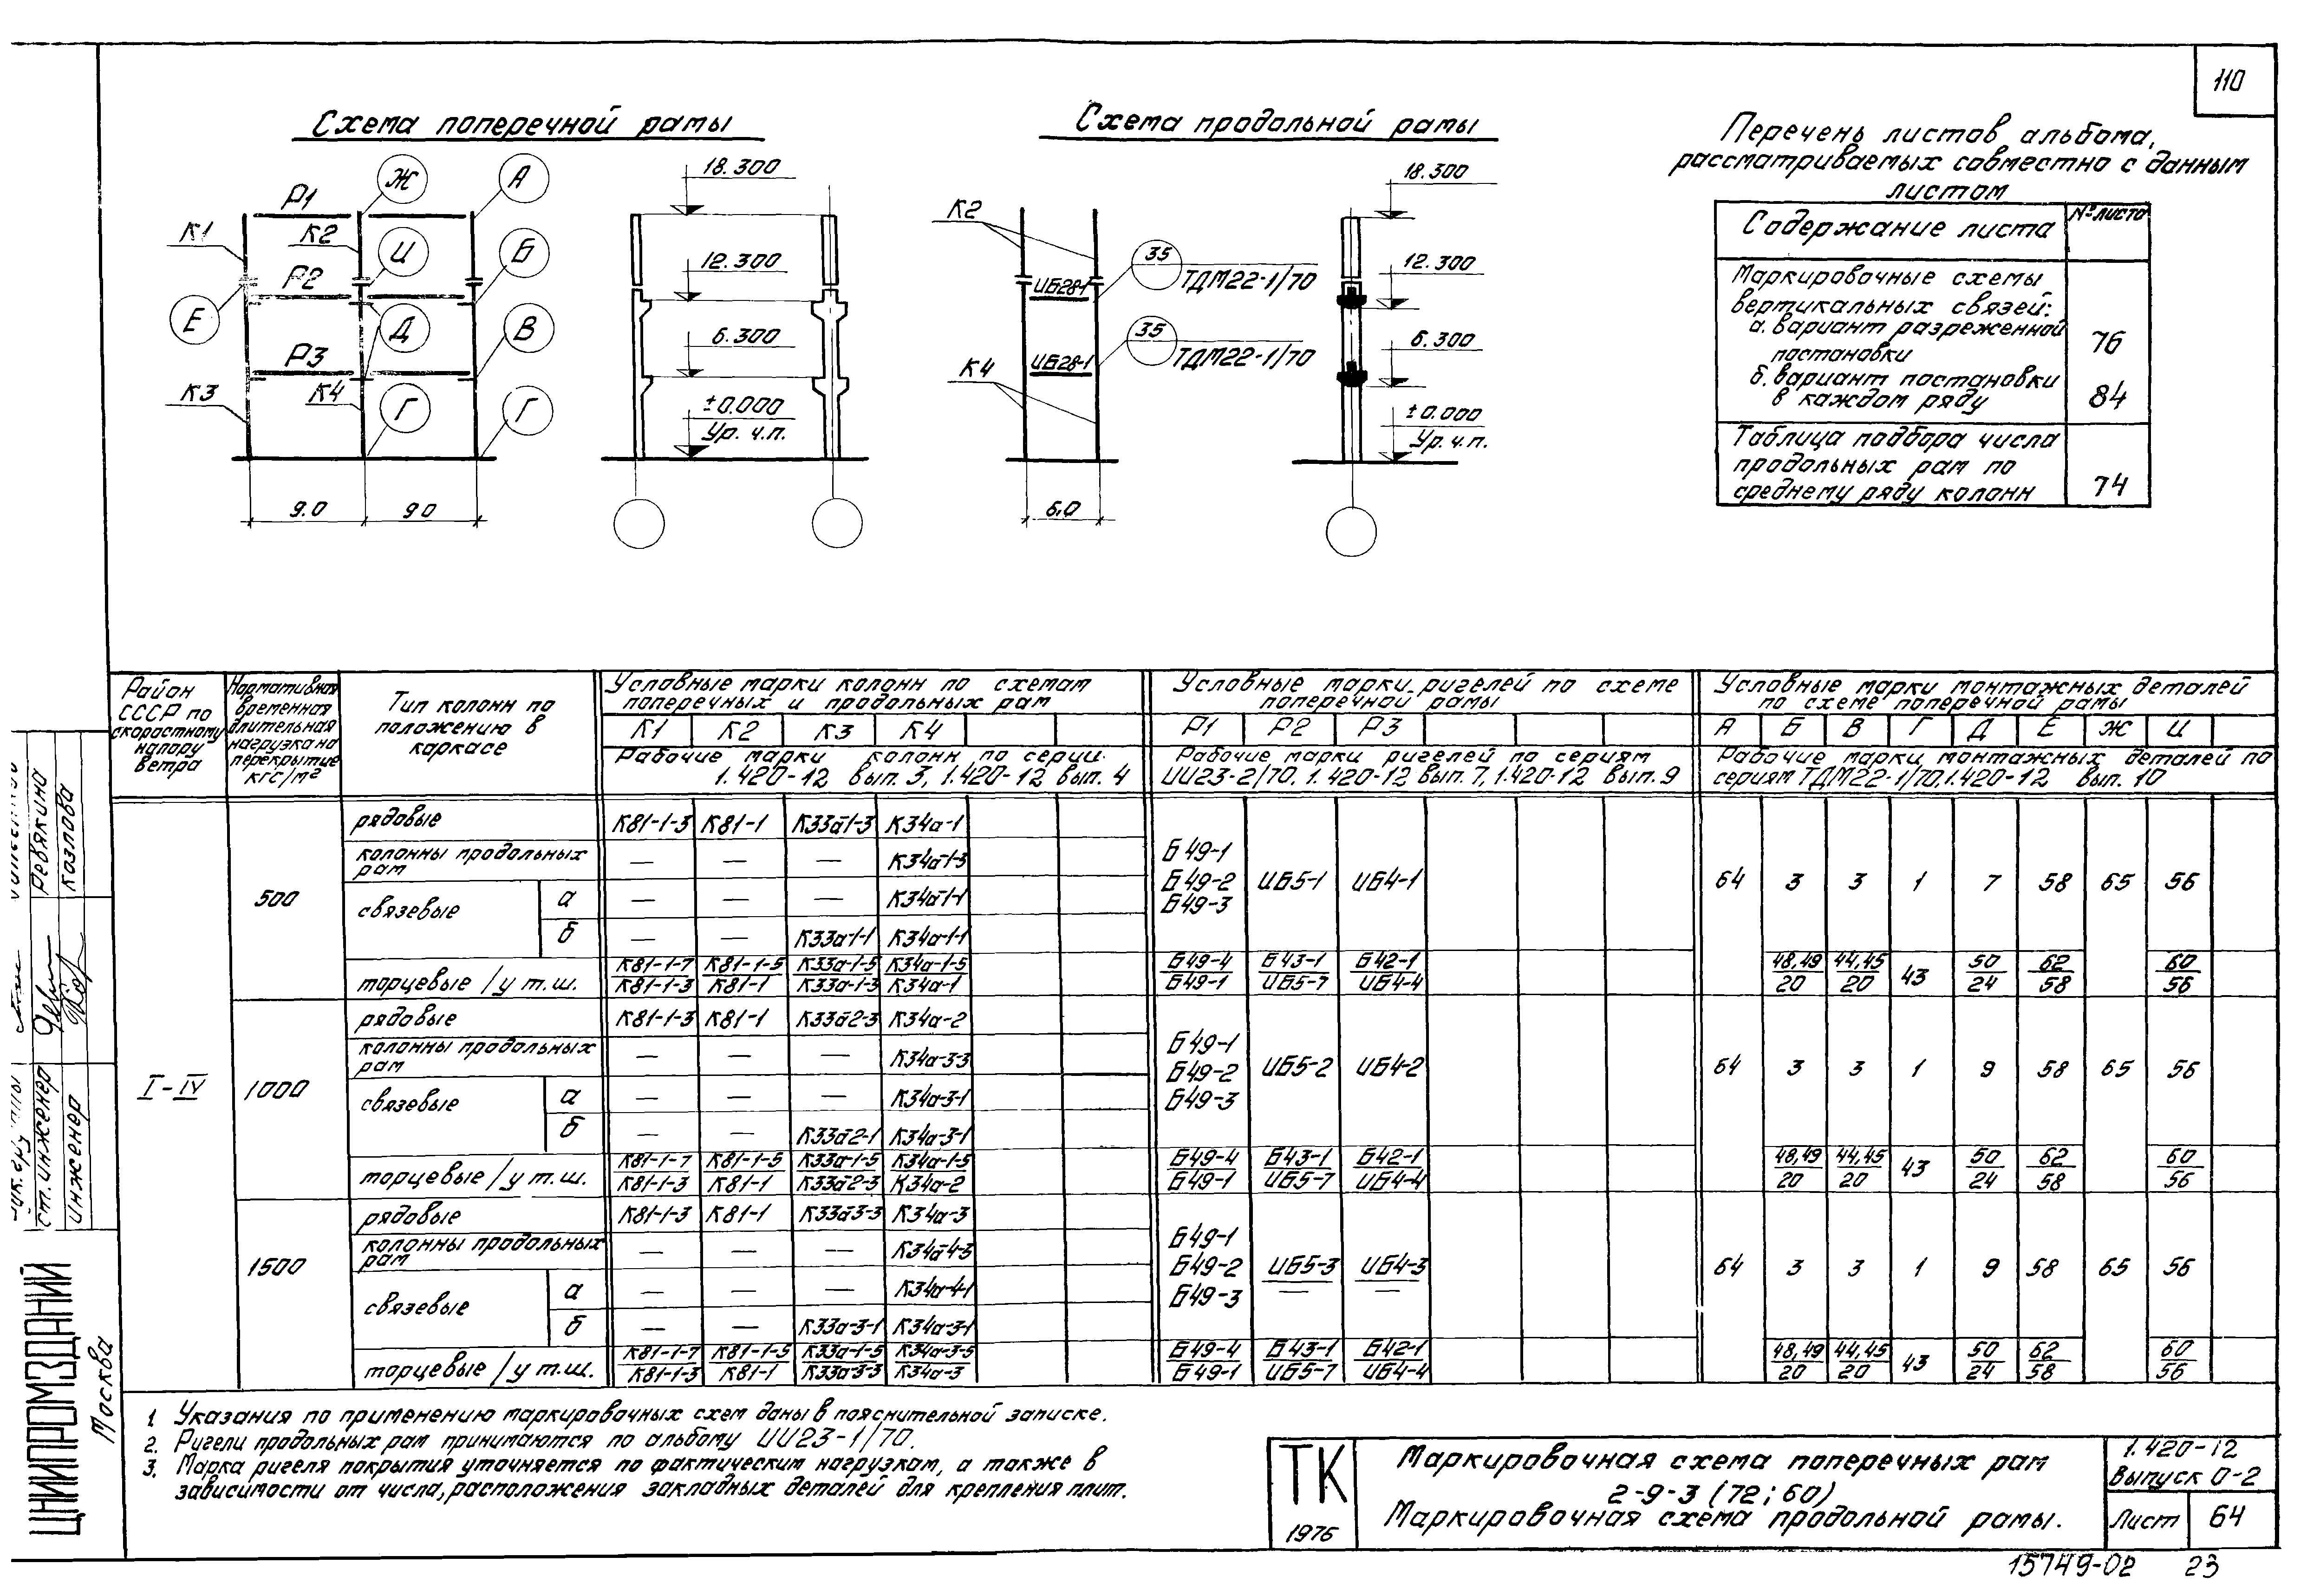 110
Схема поперечной рамы
Ж
А
Р1
К1
К2
И
Б
Р2
Е
Д
В
Р3
К3
К4
Г
Г
9.0
9.0
18.300
12.300
6.300
±0.000
Ур. ч.п.
Схема продольной рамы
К2
35
ТДМ22-1/70
ИБ28-1
35
ТДМ22-1/70
ИБ28-1
К4
6.0
18.300
12.300
6.300
±0.000
Ур. ч.п.
Перечень листов альбома,
рассматриваемых совместно с данным
листом
Содержание листа
№ листа
Маркировочные схемы
вертикальных связей:
а. вариант разреженной
постановки
76
б. вариант постановки
в каждом ряду
84
Таблица подбора числа
продольных рам по
среднему ряду колонн
74
Район СССР по скоростному напору ветра
Нормативная временная длительная нагрузка на перекрытие кгс/м²
Тип колонн по положению в каркасе
Условные марки колонн по схемам поперечных и продольных рам
К1 К2 К3 К4
Рабочие марки колонн по серии: 1.420-12 вып. 3, 1.420-12 вып. 4
Условные марки ригелей по схеме поперечной рамы
Р1 Р2 Р3
Рабочие марки ригелей по сериям ИИ23-2/70, 1.420-12 вып. 7, 1.420-12 вып. 9
Условные марки монтажных деталей по схеме поперечной рамы
А Б В Г Д Е Ж И
Рабочие марки монтажных деталей по сериям ТДМ22-1/70, 1.420-12 вып. 10
I-IV
500
рядовые К81-1-3 К81-1 К33а-1-3 К34а-1
колонны продольных рам — — — К34а-1-3
связевые а — — — К34а-1-1
б — — К33а-1-1 К34а-1-1
Б49-1
Б49-2 ИБ5-1 ИБ4-1
Б49-3
64 3 3 1 7 58 65 56
торцевые / у т.ш. К81-1-7 К81-1-5 К33а-1-5 К34а-1-5 Б49-4 Б43-1 Б42-1 48,49 44,45 43 50 62 60
К81-1-3 К81-1 К33а-1-3 К34а-1 Б49-1 ИБ5-7 ИБ4-4 20 20 24 58 56
1000
рядовые К81-1-3 К81-1 К33а-2-3 К34а-2
колонны продольных рам — — — К34а-3-3
связевые а — — — К34а-3-1
б — — К33а-2-1 К34а-3-1
Б49-1
Б49-2 ИБ5-2 ИБ4-2
Б49-3
64 3 3 1 9 58 65 56
торцевые / у т.ш. К81-1-7 К81-1-5 К33а-1-5 К34а-1-5 Б49-4 Б43-1 Б42-1 48,49 44,45 43 50 62 60
К81-1-3 К81-1 К33а-2-3 К34а-2 Б49-1 ИБ5-7 ИБ4-4 20 20 24 58 56
1500
рядовые К81-1-3 К81-1 К33а-3-3 К34а-3
колонны продольных рам — — — К34а-4-3
связевые а — — — К34а-4-1
б — — К33а-3-1 К34а-3-1
Б49-1
Б49-2 ИБ5-3 ИБ4-3
Б49-3 — —
64 3 3 1 9 58 65 56
торцевые / у т.ш. К81-1-7 К81-1-5 К33а-1-5 К34а-3-5 Б49-4 Б43-1 Б42-1 48,49 44,45 43 50 62 60
К81-1-3 К81-1 К33а-3-3 К34а-3 Б49-1 ИБ5-7 ИБ4-4 20 20 24 58 56
1. Указания по применению маркировочных схем даны в пояснительной записке.
2. Ригели продольных рам принимаются по альбому ИИ23-1/70.
3. Марка ригеля покрытия уточняется по фактическим нагрузкам, а также в
зависимости от числа, расположения закладных деталей для крепления плит.
ТК
1976
Маркировочная схема поперечных рам
2-9-3 (72; 60)
Маркировочная схема продольной рамы.
1.420-12
Выпуск 0-2
Лист 64
15749-02 23
Ревякина
Козлова
ст. инженер
инженер
ЦНИИПРОМЗДАНИЙ
Москва